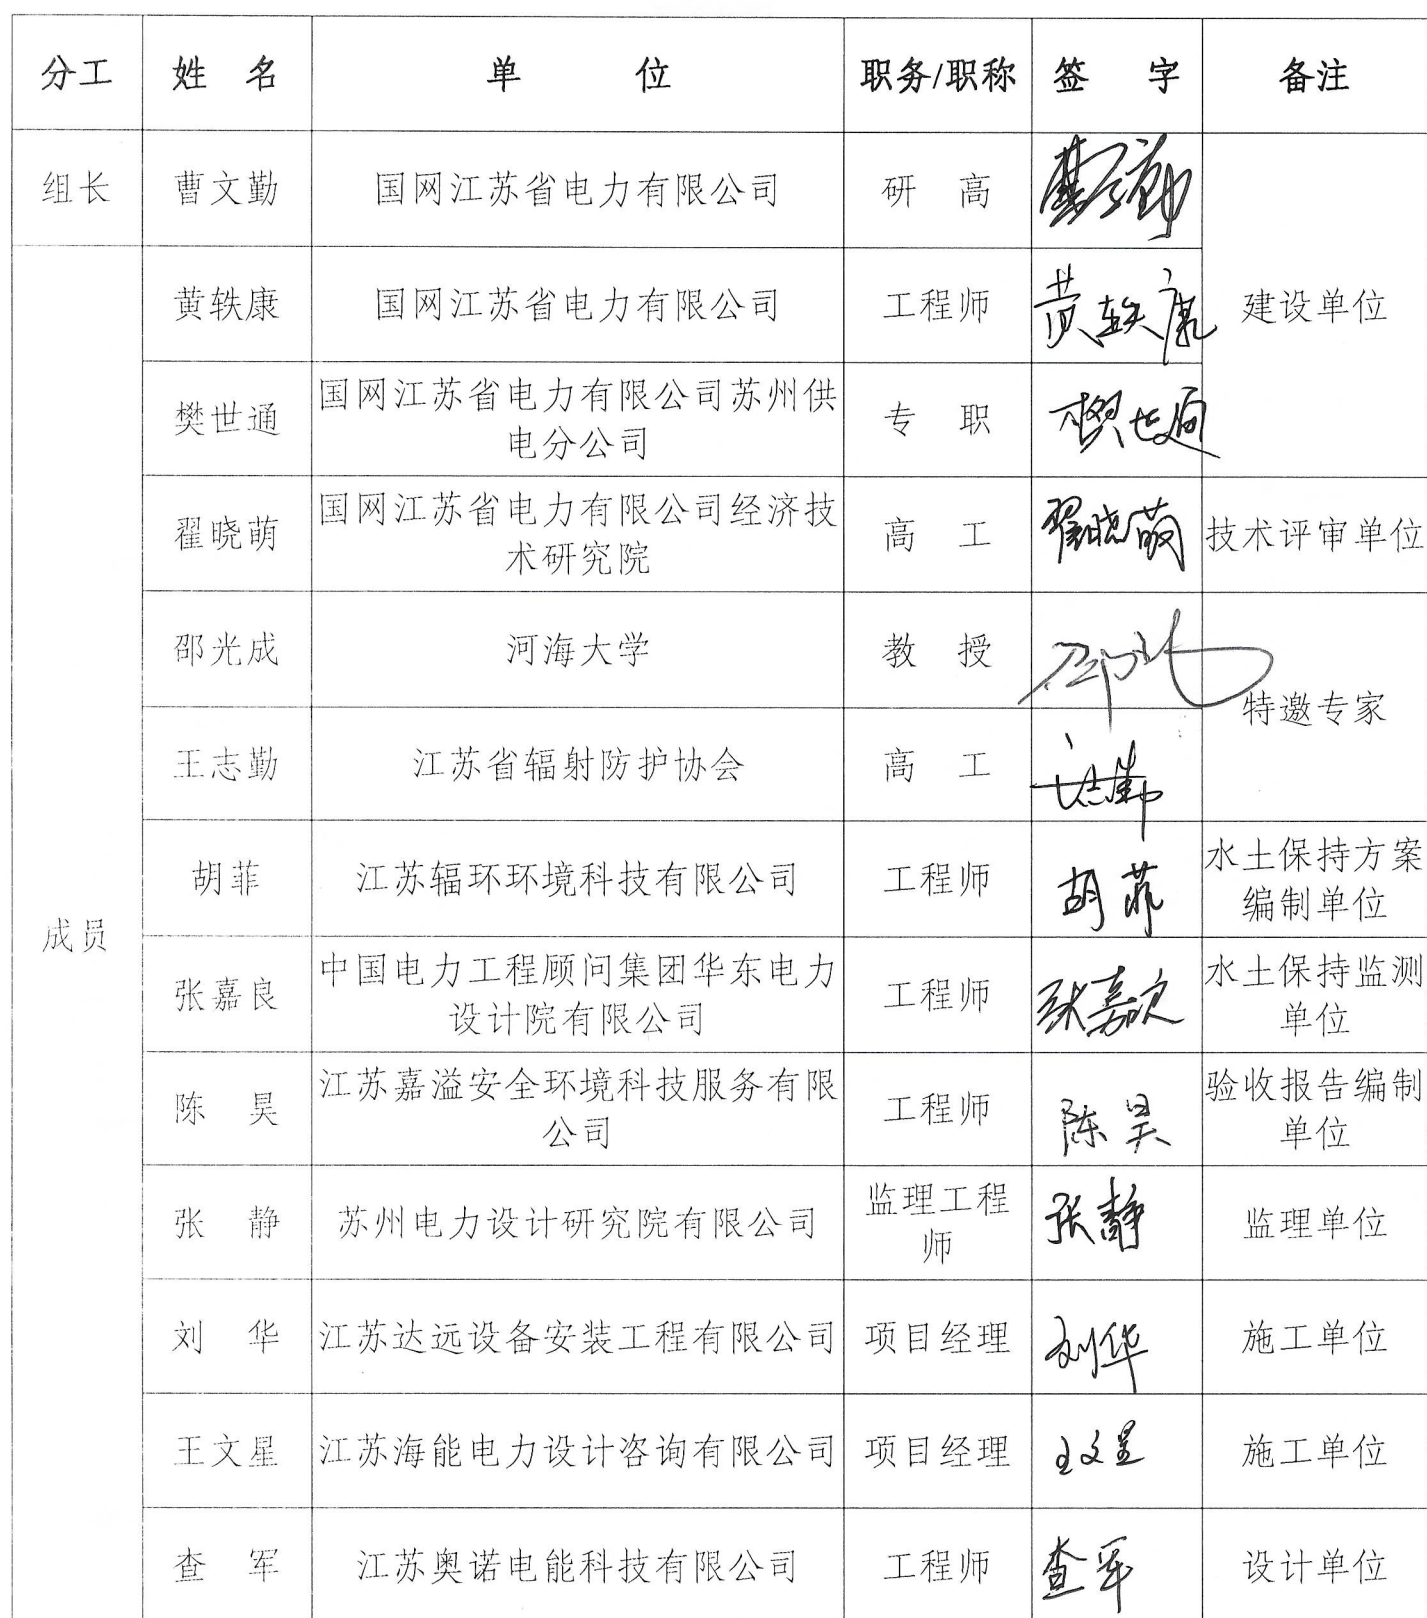 分工 姓 名 单 位 职务/职称 签 字 备注
组长 曹文勤 国网江苏省电力有限公司 研 高 曹文勤
黄轶康 国网江苏省电力有限公司 工程师 黄轶康 建设单位
樊世通 国网江苏省电力有限公司苏州供
电分公司 专 职 樊世通
翟晓萌 国网江苏省电力有限公司经济技
术研究院 高 工 翟晓萌 技术评审单位
邵光成 河海大学 教 授
特邀专家
王志勤 江苏省辐射防护协会 高 工 王志勤
成员
胡菲 江苏辐环环境科技有限公司 工程师 胡菲 水土保持方案
编制单位
张嘉良 中国电力工程顾问集团华东电力
设计院有限公司 工程师 水土保持监测
单位
陈 昊 江苏嘉溢安全环境科技服务有限
公司 工程师 陈昊 验收报告编制
单位
张 静 苏州电力设计研究院有限公司 监理工程
师 张静 监理单位
刘 华 江苏达远设备安装工程有限公司 项目经理 刘华 施工单位
王文星 江苏海能电力设计咨询有限公司 项目经理 王文星 施工单位
查 军 江苏奥诺电能科技有限公司 工程师 查军 设计单位